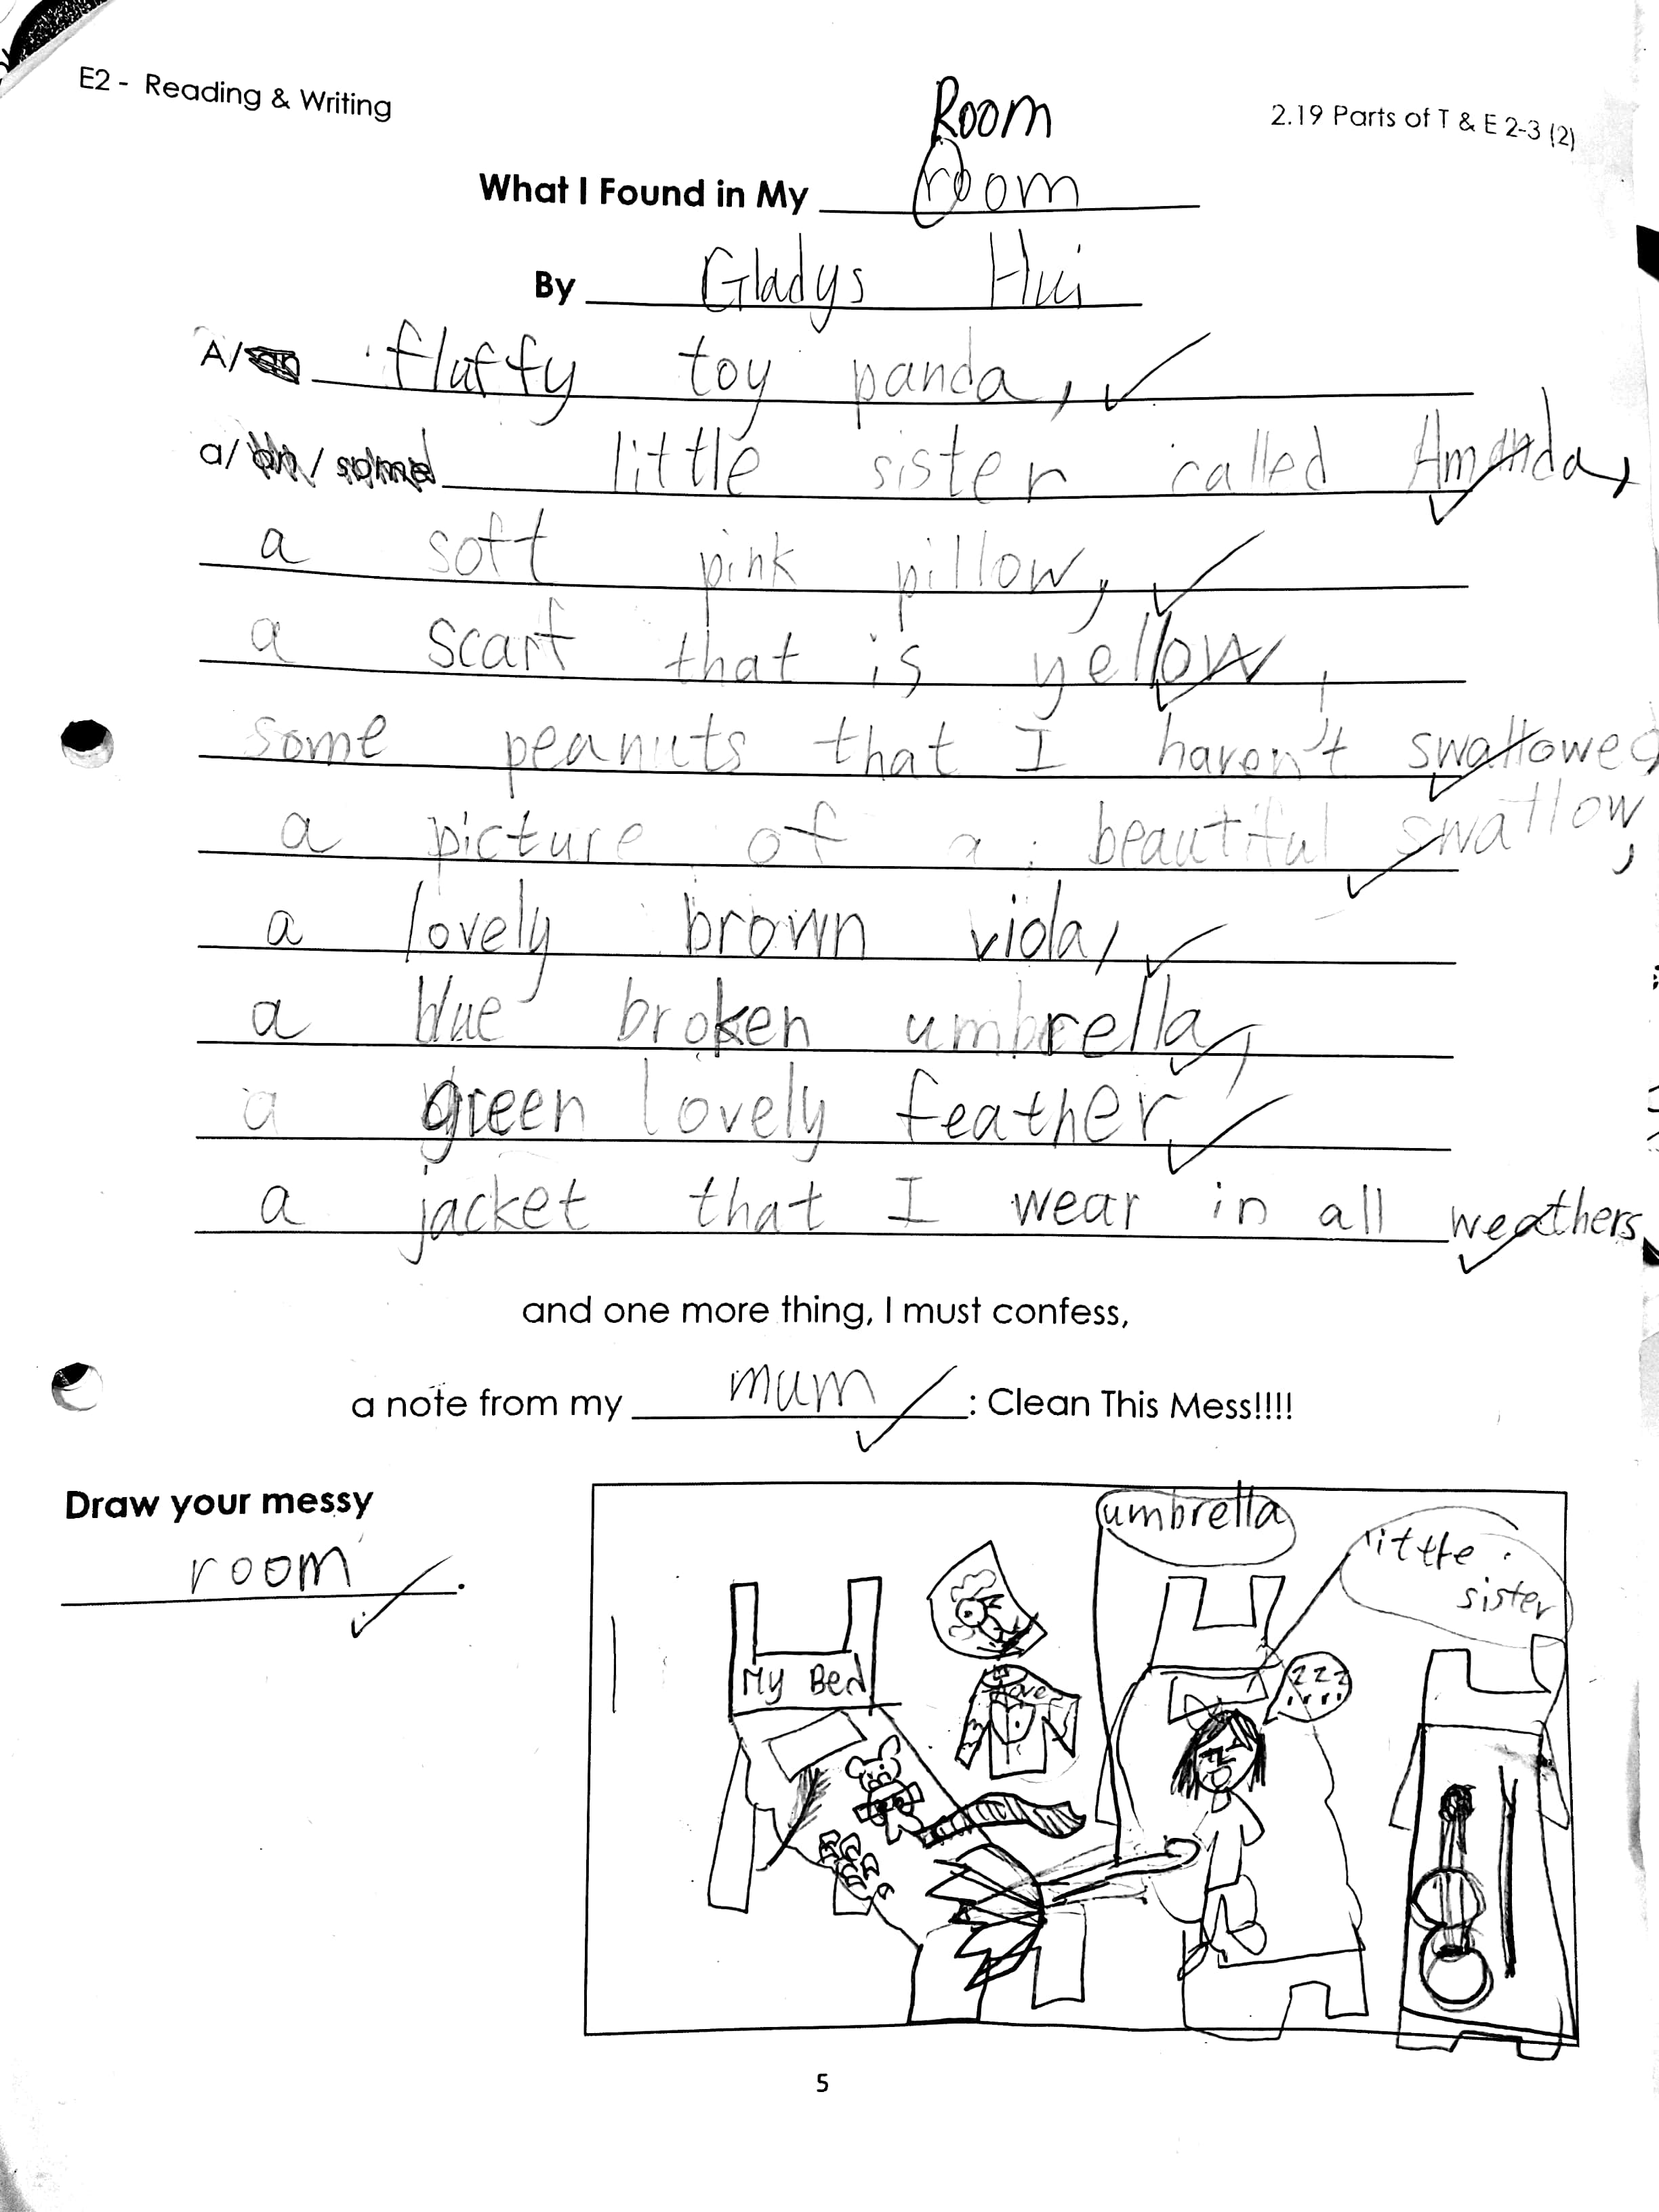 E2 - Reading & Writing
2.19 Parts of T & E 2-3 (2)
Room
What I Found in My room
By Gladys Hui
A/an fluffy toy panda,
a/ an / some little sister called Amanda,
a soft pink pillow,
a scarf that is yellow,
some peanuts that I haven't swallowed
a picture of a beautiful swallow,
a lovely brown viola,
a blue broken umbrella,
a green lovely feather
a jacket that I wear in all weathers
and one more thing, I must confess,
a note from my mum : Clean This Mess!!!!
Draw your messy
room.
umbrella
little
sister
My Bed
zzz
5